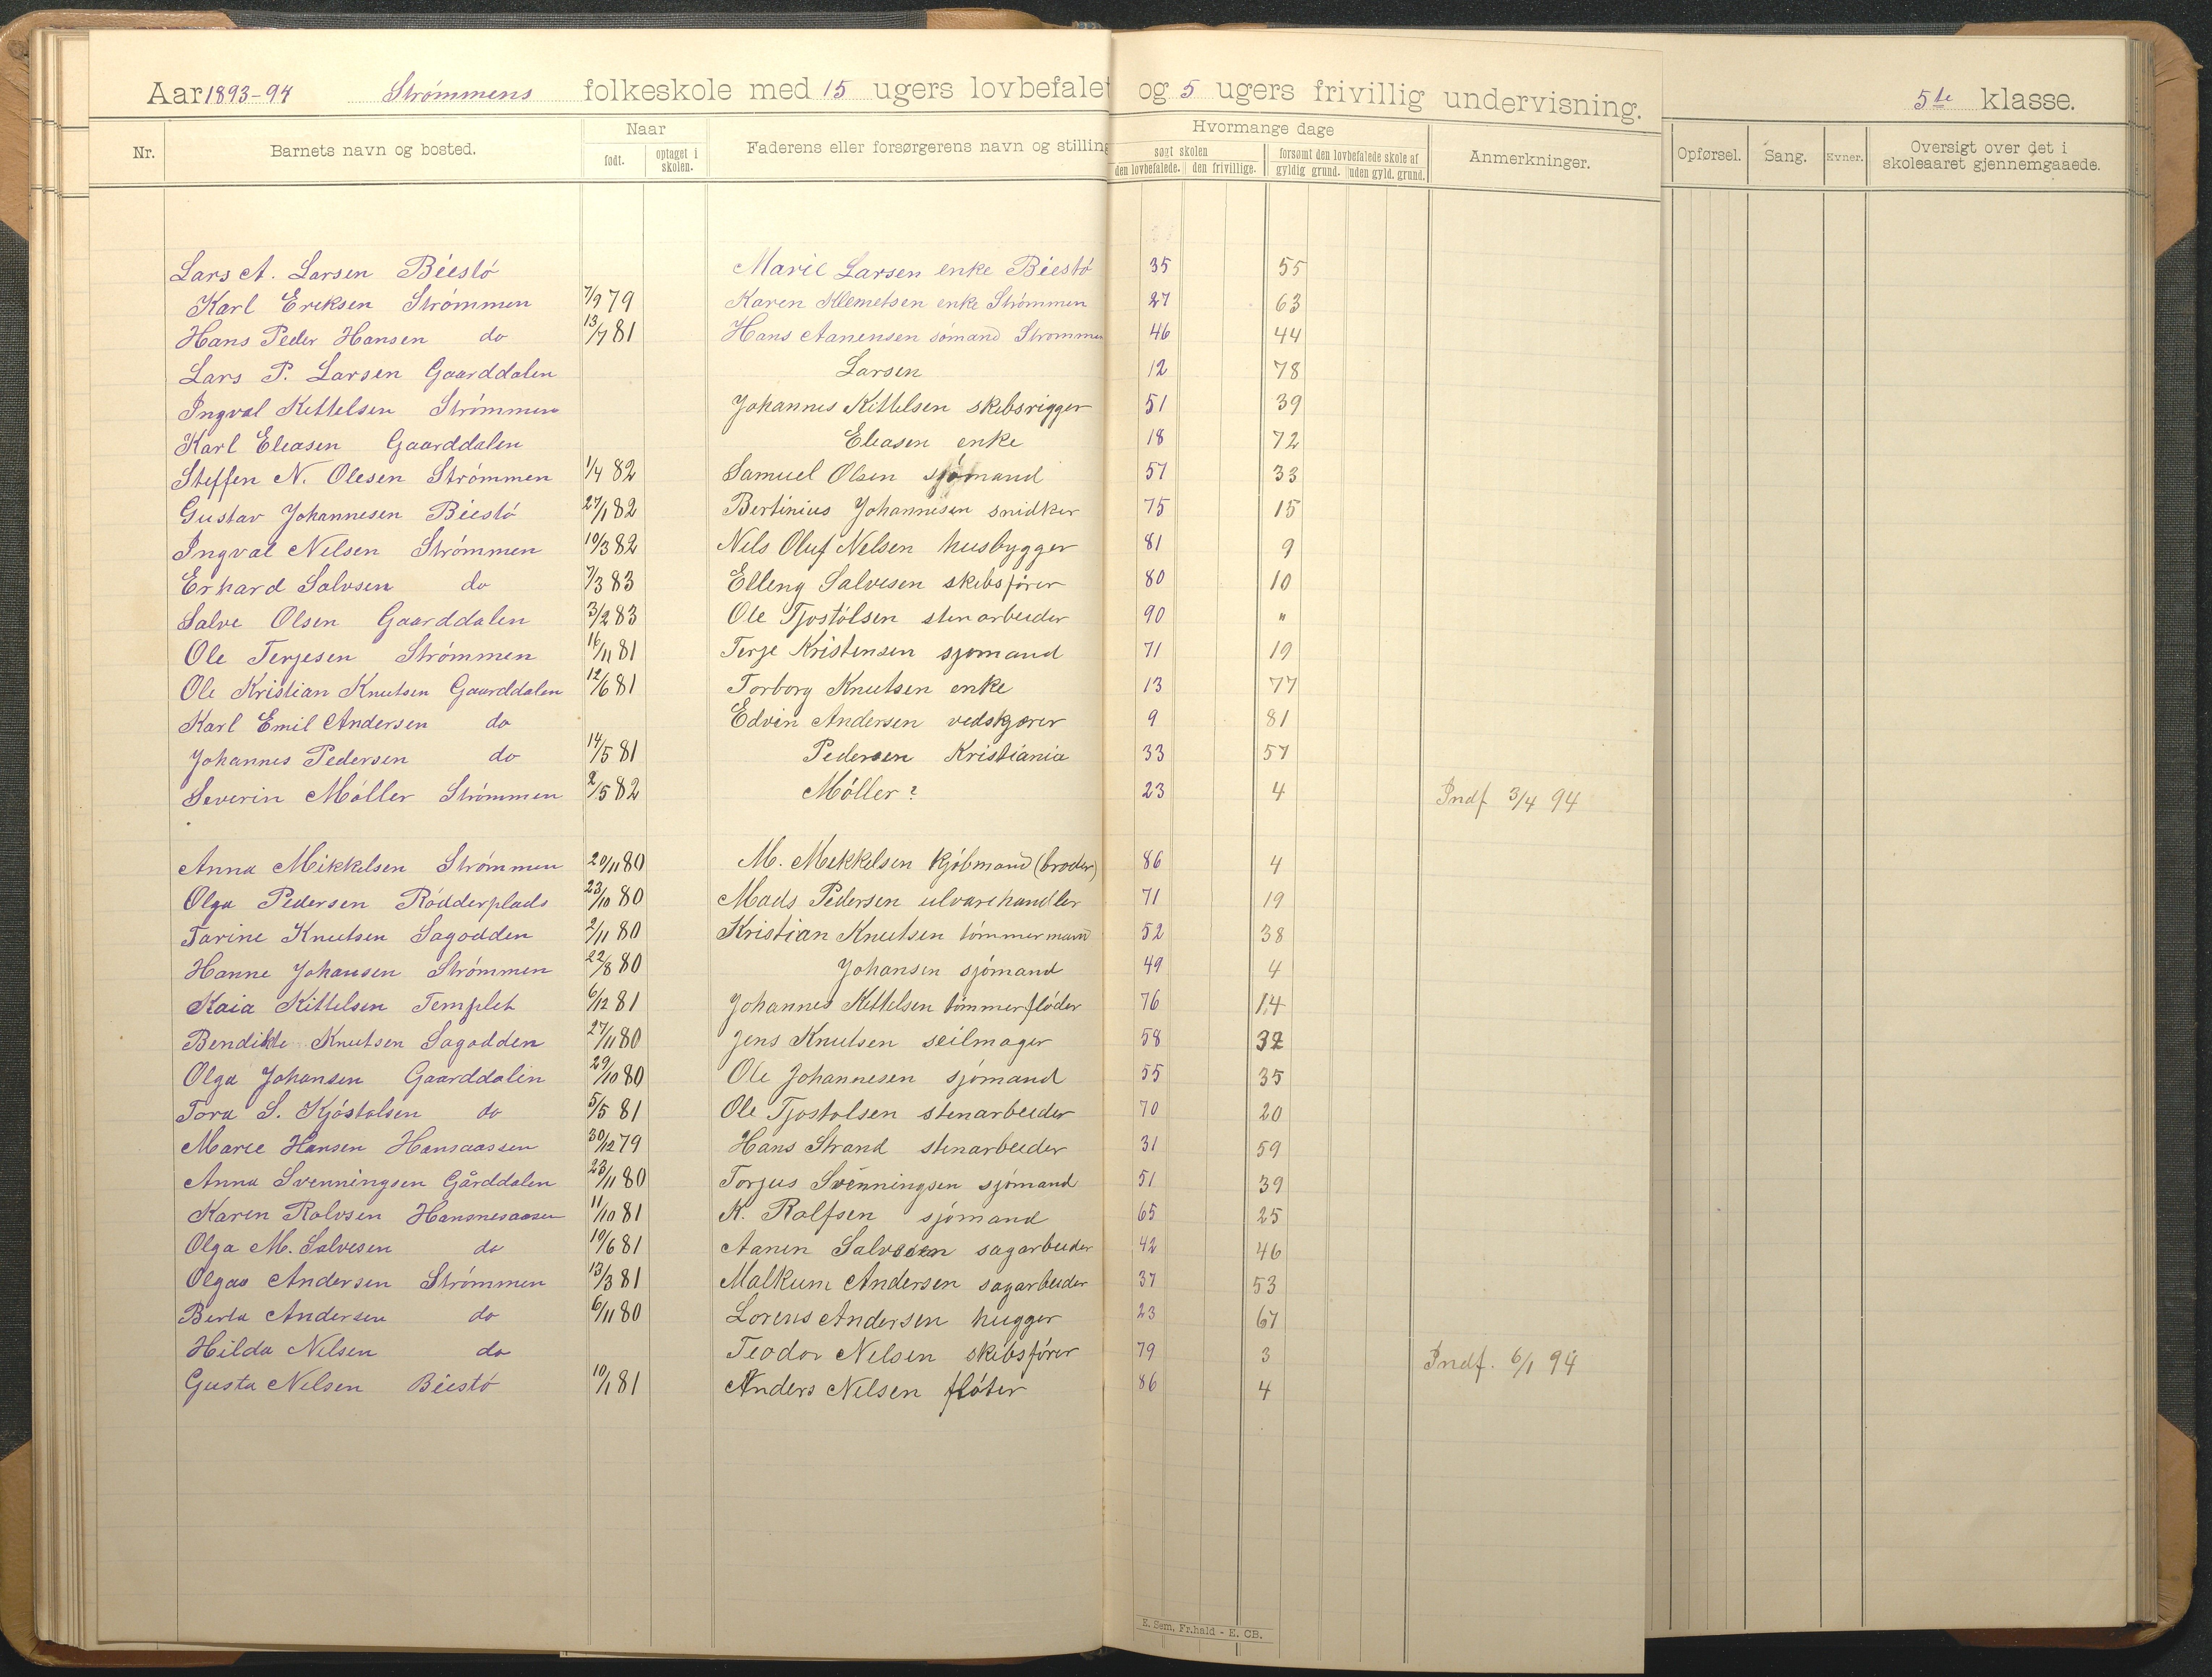 Aar 1893-94 Strømmens folkeskole med 15 ugers lovbefalet og 5 ugers frivillig undervisning. 5te klasse.
Nr. Barnets navn og bosted. Naar født. optaget i skolen. Faderens eller forsørgerens navn og stilling Hvormange dage søgt skolen den lovbefalede. den frivillige. forsømt den lovbefalede skole af gyldig grund. uden gyld. grund. Anmerkninger. Opførsel. Sang. Evner. Oversigt over det i skoleaaret gjennemgaaede.
Lars A. Larsen Biestø Marie Larsen enke Biestø 35 55
Karl Eriksen Strømmen 7/9 79 Karen Klemetsen enke Strømmen 27 63
Hans Peder Hansen do 13/7 81 Hans Aanensen sømand Strømmen 46 44
Lars P. Larsen Gaarddalen Larsen 12 78
Ingval Kettelsen Strømmen Johannes Kittelsen skibsrigger 51 39
Karl Eleasen Gaarddalen Eleasen enke 18 72
Steffen N. Olesen Strømmen 1/4 82 Samuel Olsen sjømand 57 33
Gustav Johannesen Biestø 27/1 82 Bertinius Johannesen snidker 75 15
Ingval Nilsen Strømmen 10/3 82 Nils Oluf Nelsen husbygger 81 9
Erhard Salvsen do 7/3 83 Elleng Salvesen skibsfører 80 10
Salve Olsen Gaarddalen 3/2 83 Ole Tjostølsen stenarbeider 90 "
Ole Terjesen Strømmen 16/11 81 Terje Kristensen sjømand 71 19
Ole Kristian Knutsen Gaarddalen 12/6 81 Torborg Knutsen enke 13 77
Karl Emil Andersen do Edvin Andersen vedskjærer 9 81
Johannes Pedersen do 14/5 81 Pedersen Kristiania 33 57
Severin Møller Strømmen 2/5 82 Møller? 23 4 Indf 3/4 94
Anna Mikkelsen Strømmen 20/11 80 M. Mekkelsen Kjøbmand (broder) 86 4
Olga Pedersen Rødderplads 23/10 80 Mads Pedersen ulvarehandler 71 19
Tarine Knutsen Sagodden 2/11 80 Kristian Knutsen tømmermann 52 38
Hanne Johansen Strømmen 22/8 80 Johansen sjømand 49 4
Kaia Kittelsen Templet 6/12 81 Johannes Kettelsen tømmerfløder 76 14
Bendikte Knutsen Sagodden 27/11 80 Jens Knutsen seilmager 58 32
Olga Johansen Gaarddalen 29/10 80 Ole Johannesen sjømand 55 35
Tora S. Kjøstolsen do 5/5 81 Ole Tjostolsen stenarbeider 70 20
Marie Hansen Hansaassen 30/12 79 Hans Strand stenarbeider 31 59
Anna Svenningsen Gårddalen 23/11 80 Torjus Svenningsen sjømand 51 39
Karen Ralvsen Hansnesaasen 11/10 81 K. Ralfsen sjømand 65 25
Olga M. Salvesen do 10/6 81 Aanen Salvesen sagarbeider 42 46
Olgaa Andersen Strømmen 13/3 81 Malkum Andersen sagarbeider 37 53
Berta Andersen do 6/11 80 Lorens Andersen hugger 23 67
Hilda Nilsen do Teodor Nelsen skibsfører 79 3 Indf. 6/1 94
Gusta Nelsen Biestø 10/1 81 Anders Nelsen fløter 86 4
E. Sem, Fr.hald - E. CB.